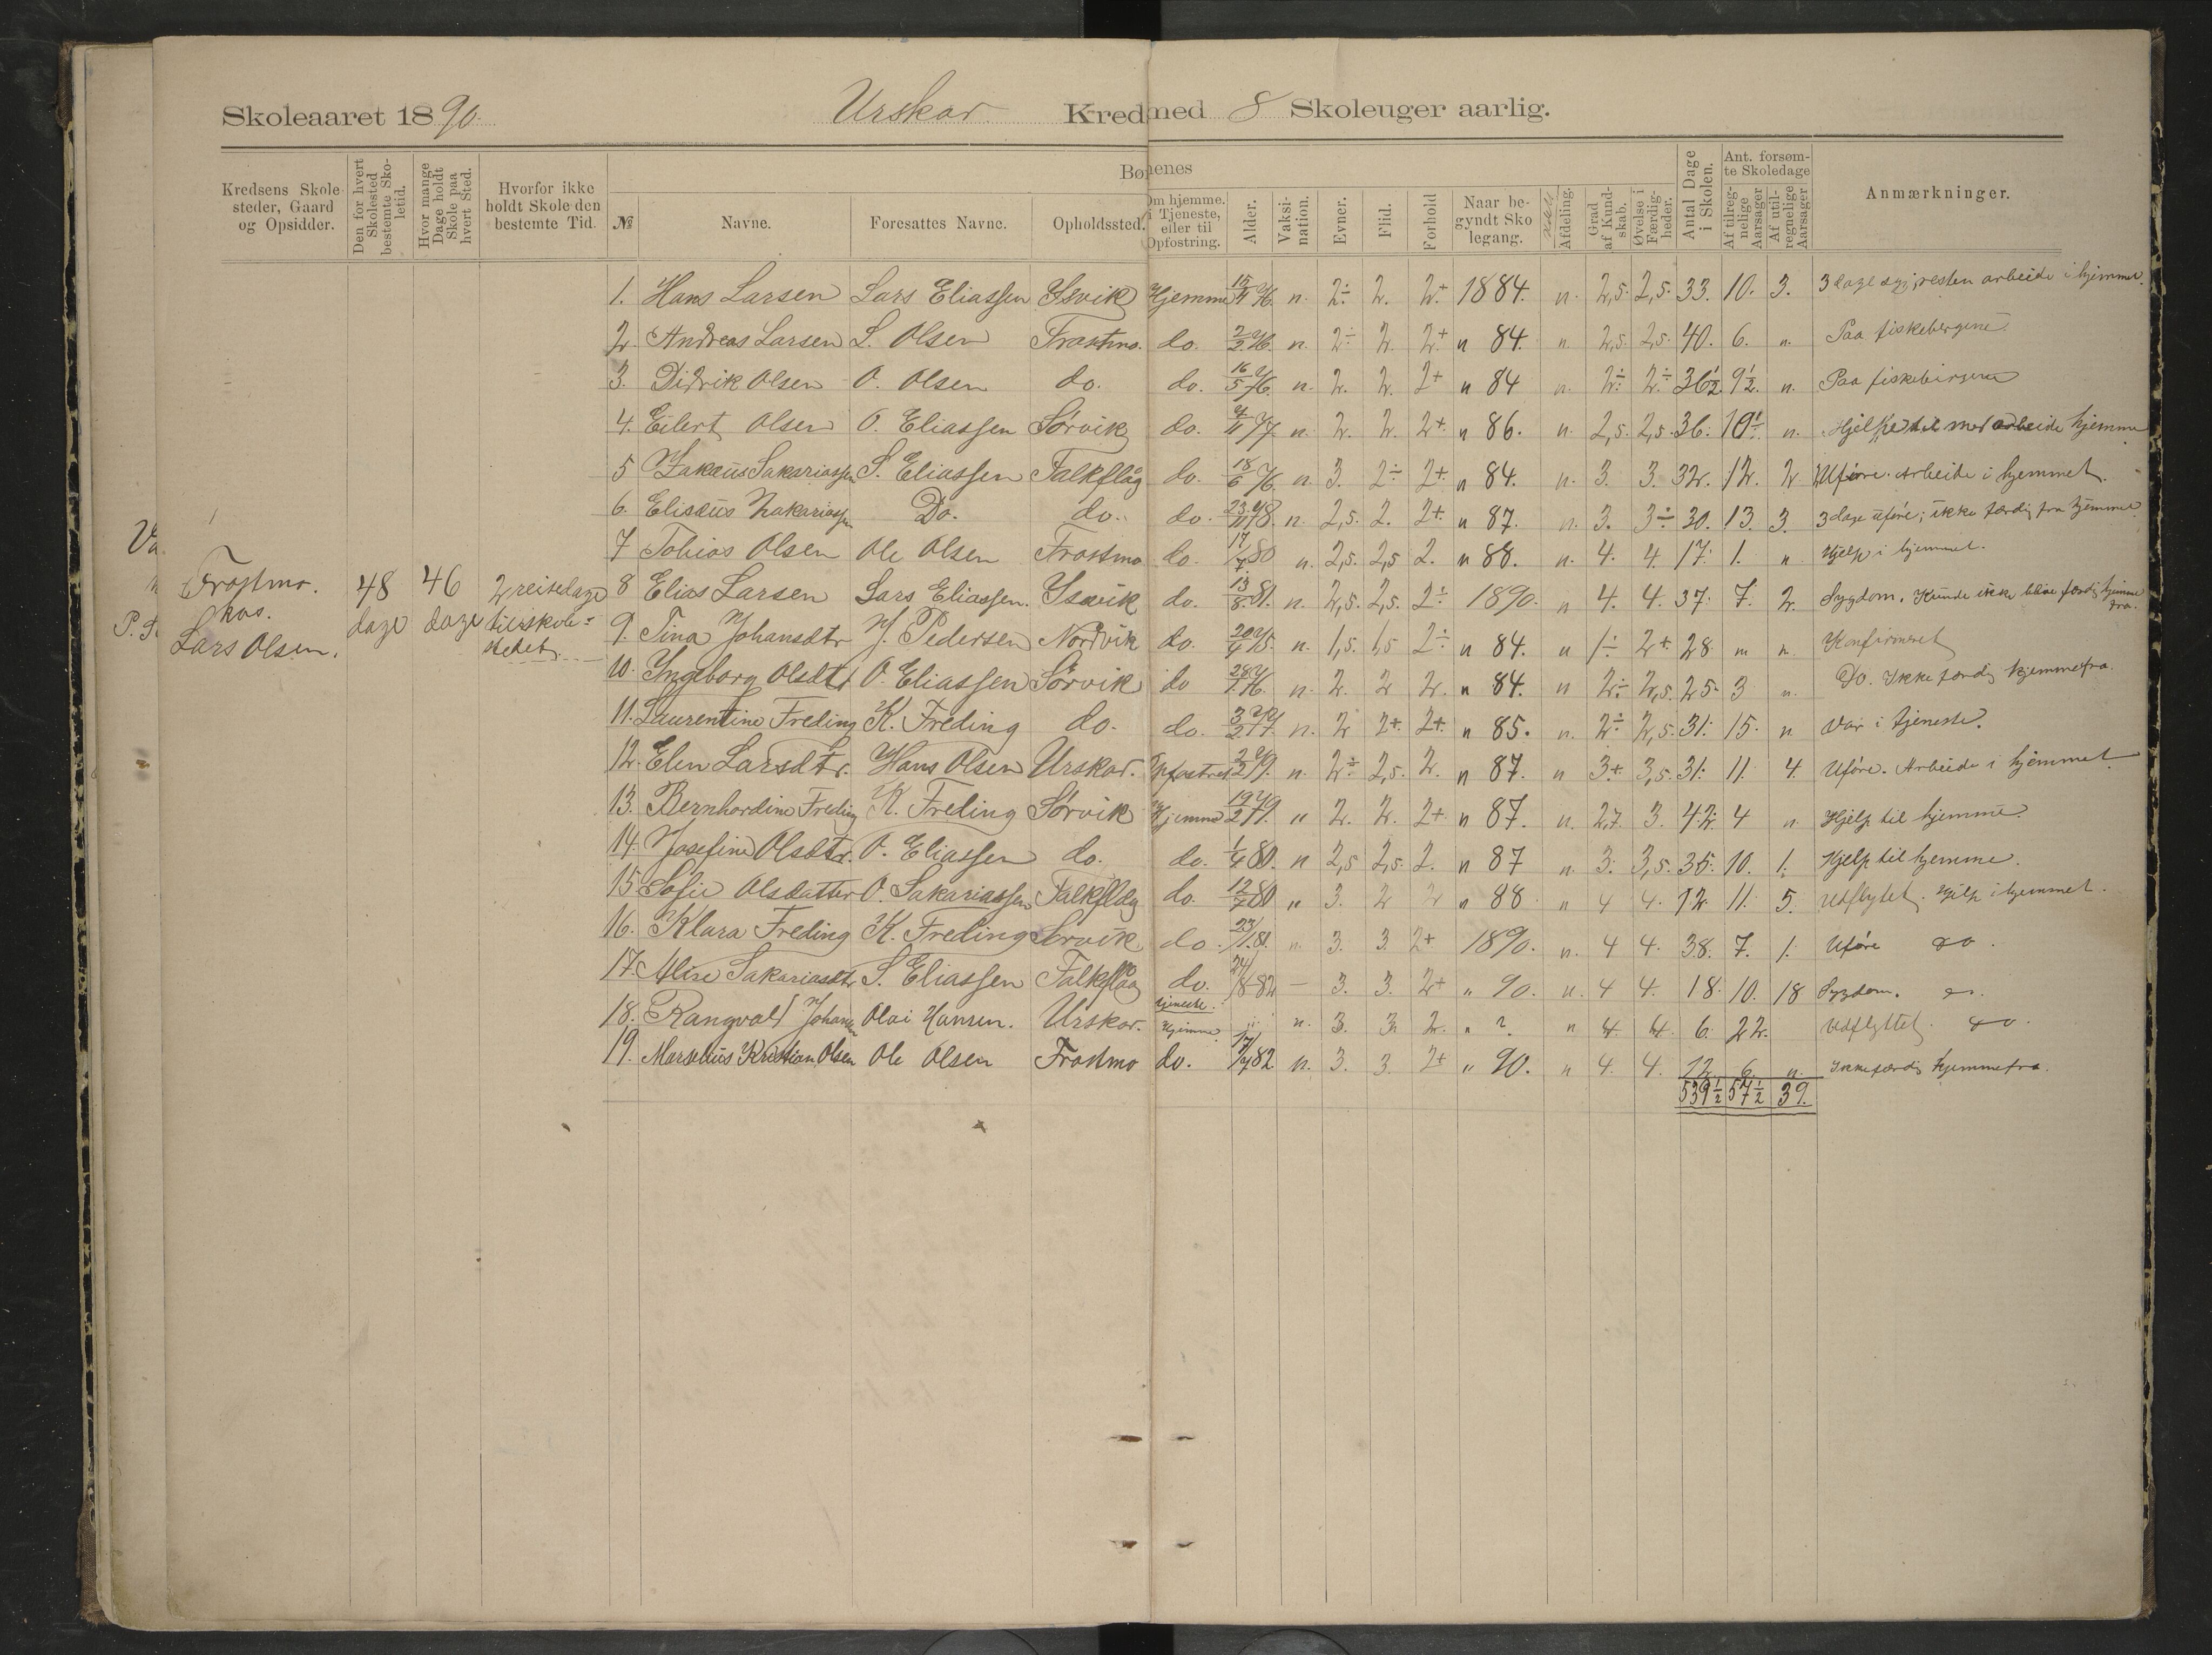 Skoleaaret 1890. Urskar Kred med 8 Skoleuger aarlig.
Kredsens Skolesteder, Gaard og Opsidder. Den for hvert Skolested bestemte Skoletid. Hvor mange Dage holdt Skole paa hvert Sted. Hvorfor ikke holdt Skole den bestemte Tid. Børnenes
№ Navne. Foresattes Navne. Opholdssted. Om hjemme. i Tjeneste, eller til Opfostring. Alder. Vaksination. Evner. Flid. Forhold Naar begyndt Skolegang. Afdeling. Grad af Kundskab. Øvelse i Færdigheder. Antal Dage i Skolen. Ant. forsømte Skoledage Af tilregnelige Aarsager Af utilregnelige Aarsager Anmærkninger.
1. Hans Larsen Lars Eliassen Isvik Hjemme 15/4 76. n. 2÷ 2. 2+ 1884. n. 2,5. 2,5. 33. 10. 3. 3 dage syg; resten arbeide i hjemmet.
2. Andreas Larsen L. Olsen Frostmo. do. 2/2 76. n. 2÷ 2. 2+ n 84. n. 2,5. 2,5. 40. 6. n. Paa fiskebergene.
3. Didrik Olsen O. Olsen do. do. 16/5 76. n. 2. 2. 2+ n 84 n. 2÷ 2÷ 36½. 9½. n. Paa fiskebergene
4. Eilert Olsen O. Eliassen Sørvik do. 77. n. 2. 2. 2+. n 86. n. 2,5. 2,5. 36. n. Hjelpe til med arbeide hjemme
5 Zakæus Sakariassen S. Eliassen Falkflåg do. 18/6 76. n. 3. 2÷ 2+. n 84. n. 3. 3. 32. 12. 2 Uføre. Arbeide i hjemmet.
6. Elisæus Zakariassen Do. do. do. 23/11 78. n. 2,5. 2. 2+. n 87. n. 3. 3÷ 30. 13. 3. 3 dage uføre; ikke færdig fra hjemmet
7 Tobias Olsen Ole Olsen Frostmo do. 17/7 80 n. 2,5. 2,5 2. n 88. n. 4. 4. 17. 1. n Hjelp i hjemmet.
Frostmo. 48 46 2 reisedage 8 Elias Larsen Lars Eliassen. Isvik do. 13/8 81. n. 2,5. 2,5. 2÷ 1890. n 4. 4. 37. 7. 2. Sygdom. Kunde ikke blive færdig hjemme fra.
hos. dage dage til skole=
9. Tina Johansdtr J. Pedersen Nordvik do. 75. n. 1,5. 1,5 2÷ n 84. n 1÷ 2+. 28 n n. Konfirmeret
Lars Olsen. stedet.
10. Ingeborg Olsdtr O. Eliassen Sørvik do 76. n. 2. 2 2. n 84. n 2÷ 2,5. 25. 3 n. Do. Ikke færdig hjemmefra.
11. Laurentine Freding K. Freding do. do. 3/2 77. n. 2 2+ 2+. n 85. n. 2÷ 2,5. 31. 15. n Var i tjeneste.
12. Elen Larsdtr. Hans Olsen Urskar. Opfostret 2/2 79. n. 2÷ 2,5. 2. n 87. n 3+. 3,5. 31. 11. 4. Uføre. Arbeide i hjemmet
13. Bernhardine Freding K. Freding Sørvik Hjemme 19/2 79. n 2. 2. 2+. n 87. n. 2,7. 3. 42. 4 n Hjelp til hjemme.
14. Josefine Olsdtr. O. Eliassen do. do. 1/4 80. n 2,5 2,5. 2. n 87 n 3. 3,5. 35. 10. 1. Hjelp til hjemme.
15 Sofie Olsdatter O. Sakariassen Falkflåg do. 12/7 80 n 3. 2 2 n 88 n 4 4. 12. 11. 5. Udflyttet. Hjelp i hjemmet.
16. Klara Freding K. Freding Sørvik do. 23/1 81. n. 3. 3. 2+ 1890. n. 4 4. 38. 7. 1. Uføre do.
17. Alise Sakariasdtr S. Eliassen Falkflåg do. 24/8 82 — 3. 3. 2+ n 90. n. 4 4. 18. 10. 18 Sygdom. do.
18. Rangvald Johansen Olai Hansen. Urskar. tjeneste. Hjemme n. 3. 3. 2. n ?. n 4. 4. 6. 22. Udflyttet. do.
19. Marselius Kristian Olsen Ole Olsen Frostmo do. 82. n. 3. 3 2+ n 90. n 4. 4. 12. 6. n. Ikke færdig hjemmefra.
539½ 57½ 39.